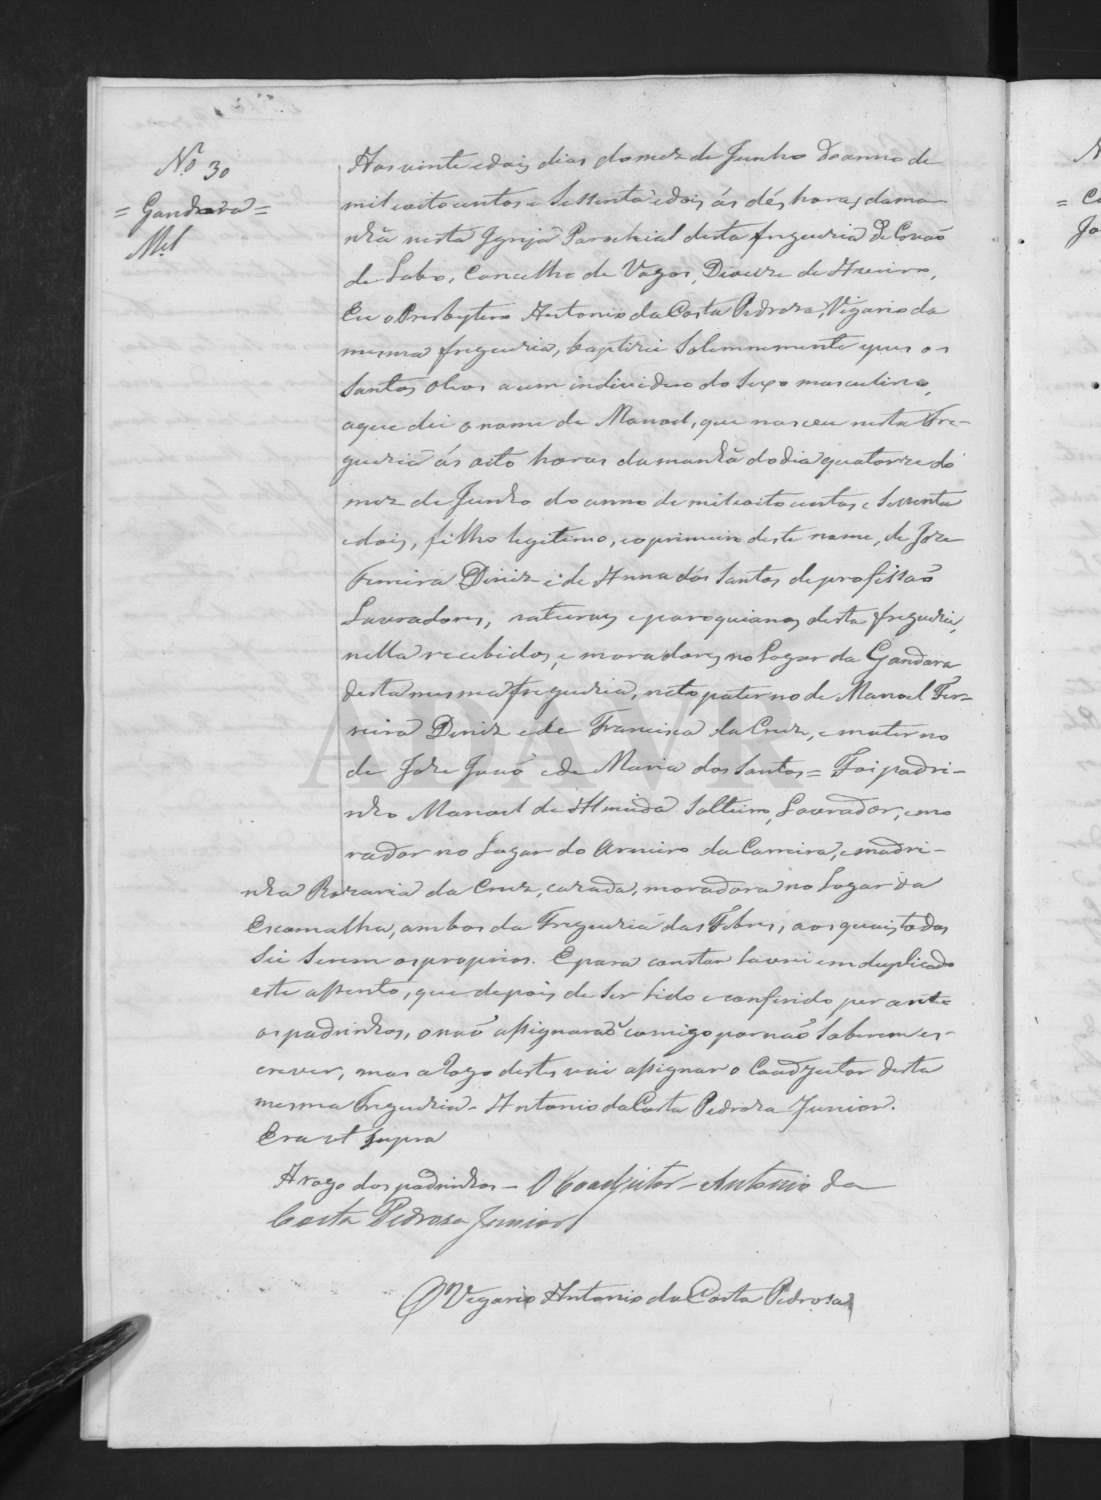 Nº 30
= Gandara =
Mel
Aos vinte e dois dias do mez de Junho do anno de
mil oito centos e Sessenta e dois ás dés horas da ma-
nhã nesta Igreja Parochial desta freguezia de Covaõ
de Lobo, Concelho de Vagos, Dioceze de Aveiro,
Eu o Presbytero Antonio da Costa Pedroza, Vigario da
mesma freguezia, baptizei Solemnemente e puz os
Santos Oleos a um individuo do Sexo masculino,
a que dei o nome de Manoel, que nasceu nesta Fre-
guezia ás oito horas da manhã do dia quatorze do
mez de Junho do anno de mil oito centos e Sessenta
e dois, filho legitimo, e o primeiro deste nome, de Joze
Ferreira Diniz e de Anna dos Santos de profissaõ
Lavradores, naturaes e paroquianos desta freguezia,
nella recebidos, e moradores no Logar da Gandara
desta mesma freguezia, neto paterno de Manoel Fer-
reira Diniz e de Francisca da Cruz, e materno
de Joze Juaõ e de Maria dos Santos = Foi padri-
nho Manoel de Almeida Solteiro, Lavrador, e mo
rador no Lugar do Arneiro da Carreira, e madri-
nha Rozaria da Cruz, cazada, moradora no Logar da
Escomalha, ambos da Freguezia das Febres, aos quaes todos
Sei Serem os proprios. E para constar lavrei em duplicado
este assento, que depois de Ser lido e conferido perante
os padrinhos, o naõ assignaraõ comigo por naõ Saberem es-
crever, mas a Rogo destes vai assignar o Coadjutor desta
mesma freguezia - Antonio da Costa Pedroza Junior.
Era ut supra
A rogo dos padrinhos - O Coadjutor - Antonio da
Costa Pedrosa Junior
O Vegario Antonio da Costa Pedrosa
ADAVR